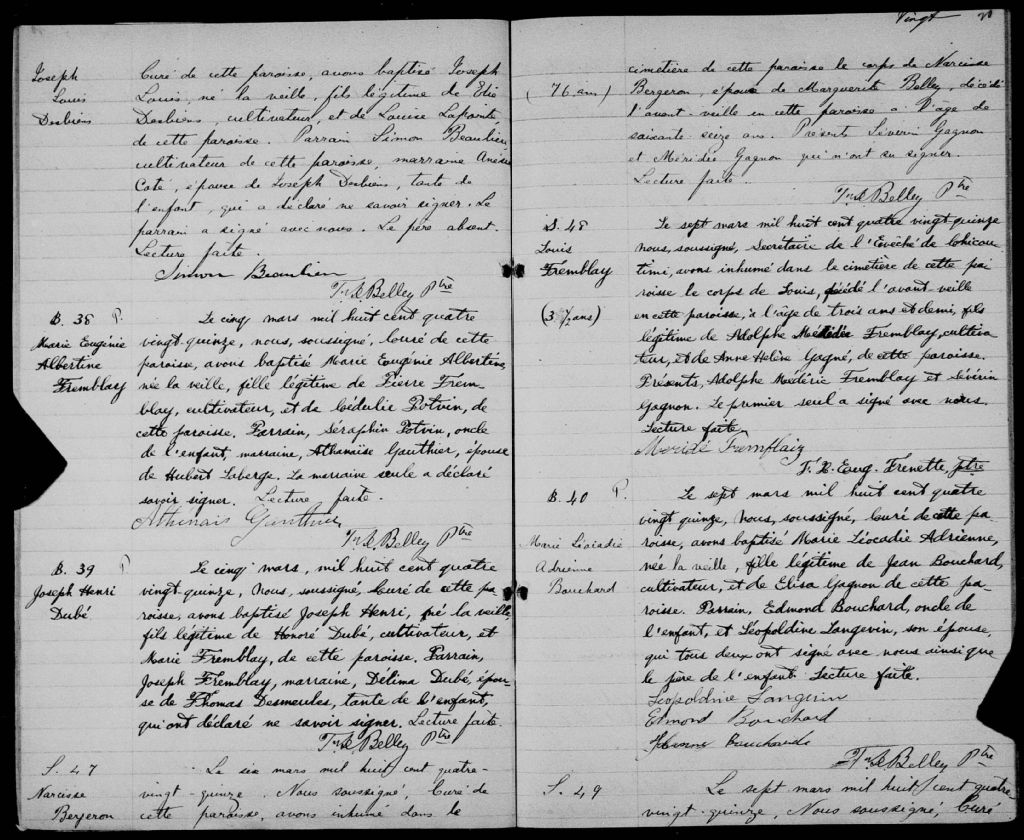 Joseph
Louis
Desbiens
Curé de cette paroisse, avons baptisé Joseph
Louis, né la veille, fils légitime de
Desbiens, cultivateur, et de Louise Lapointe
de cette paroisse. Parrain Simon Beaulieu,
cultivateur de cette paroisse, marraine
Coté, épouse de Joseph Desbiens, tante de
l'enfant, qui a déclaré ne savoir signer. Le
parrain a signé avec nous. Le père absent.
Lecture faite.
Simon Beaulieu
Belley Ptre
B. 38 P.
Marie Eugénie
Albertine
Tremblay
Le cinq mars mil huit cent quatre
vingt-quinze, nous, soussigné, Curé de cette
paroisse, avons baptisé Marie Eugénie Albertine,
née la veille, fille légitime de Pierre Trem-
blay, cultivateur, et de Cédulie Potvin, de
cette paroisse. Parrain, Séraphin Potvin, oncle
de l'enfant marraine, Athanaise Gauthier, épouse
de Hubert Laberge. La marraine seule a déclaré
savoir signer. Lecture faite.
Athénais Gauthier
Belley Ptre
B. 39 P
Joseph Henri
Dubé
Le cinq mars, mil huit cent quatre
vingt-quinze, Nous, soussigné, Curé de cette pa-
roisse, avons baptisé Joseph Henri, né la veille,
fils légitime de Honoré Dubé, cultivateur, et
Marie Tremblay, de cette paroisse. Parrain,
Joseph Tremblay, marraine, Délima Dubé, épou-
se de Thomas Desmeules, tante de l'enfant,
qui ont déclaré ne savoir signer. Lecture faite.
Belley Ptre
S. 47
Narcisse
Bergeron
Le six mars mil huit cent quatre-
vingt-quinze. Nous soussigné, Curé de
cette paroisse, avons inhumé dans le
Vingt 20
(76 ans)
cimetière de cette paroisse le corps de Narcisse
Bergeron, époux de Marguerite Belley, décédé
l'avant-veille en cette paroisse a l'age de
soixante seize ans. Présents Séverin Gagnon
et Méridée Gagnon qui n'ont su signer.
Lecture faite.
Belley Ptre
S. 48
Louis
Tremblay
(3 1/2 ans)
Le sept mars mil huit cent quatre vingt-quinze
nous, soussigné, Secrétaire de l'Evêché de Chicou-
timi, avons inhumé dans le cimetière de cette pa-
roisse le corps de Louis, décédé l'avant veille
en cette paroisse, à l'âge de trois ans et demi, fils
légitime de Adolphe Tremblay, cultiva-
teur, et de Anne Helène Gagné, de cette paroisse.
Présents, Adolphe Médéric Tremblay et Séverin
Gagnon. Le premier seul a signé avec nous.
Lecture faite.
F. X. Eug. Frenette, ptre
B. 40 P.
Marie Léocadie
Adrienne
Bouchard
Le sept mars mil huit cent quatre
vingt quinze, Nous, soussigné, Curé de cette pa-
roisse, avons baptisé Marie Léocadie Adrienne,
née la veille, fille légitime de Jean Bouchard,
cultivateur, et de Elisa Gagnon de cette pa-
roisse. Parrain, Edmond Bouchard, oncle de
l'enfant, et Léopoldine Langevin, son épouse,
qui tous deux ont signé avec nous ainsi que
le père de l'enfant. Lecture faite.
Léopoldine Langevin
Edmond Bouchard
Bouchard
Belley Ptre
S. 49
Le sept mars mil huit cent quatre-
vingt-quinze, Nous soussigné, Curé